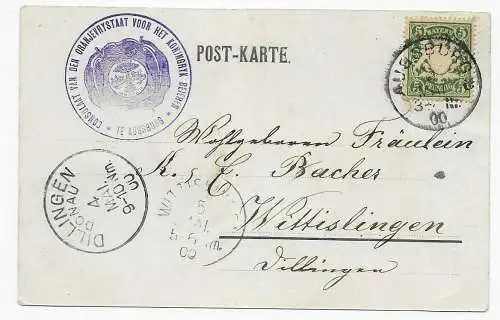 CONSULAAT VAN DEN ORANJEVRYSTAAT VOOR HET KONINGRYK BEEREN
* TE AUGSBURG *
POST-KARTE.
5 BAYERN 5
AUGSBURG
III.
00
Wohlgeboren Fräulein
K. E. Bacher
Wittislingen
Dillingen
DILLINGEN
DONAU
MAI.
14
9-10 Nm.
00